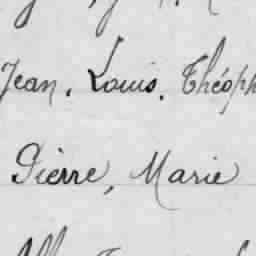 Jean, Louis, Théoph
Pierre, Marie